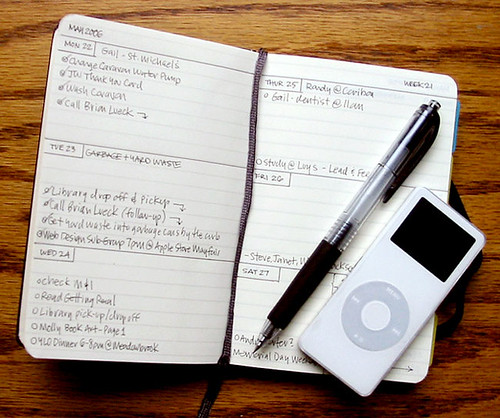 MAY 2006
MON 22
Gail - St. Michael's
Change Caravan Water Pump
JW Thank You Card
Wash Caravan
Call Brian Lueck
TUE 23
GARBAGE + YARD WASTE
Library drop off & pickup
Call Brian Lueck (follow-up)
Get yard waste into garbage cans by the curb
Web Design Sub Group 7pm @ Apple Store Mayfair
WED 24
check M&I
Read Getting Real
Library pick-up/drop off
Molly Book Art - Page 1
YLO Dinner 6-8pm @ Meadowbrook
THUR 25
Randy @ Caribou
WEEK 21
Gail - dentist @ 11am
Study @ Luy's - Lead &
FRI 26
- Steve, Janet,
SAT 27
Memorial Day
MENU